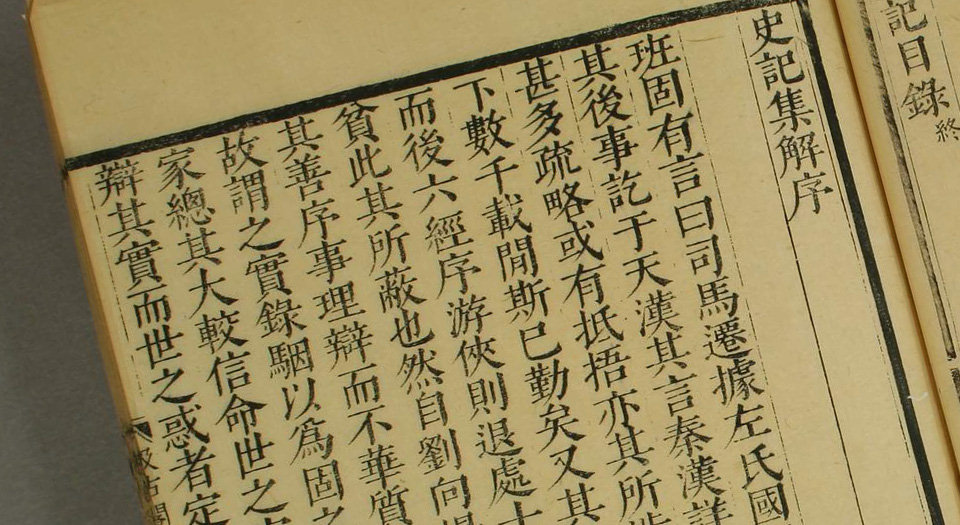 記目錄終
史記集解序
班固有言曰司馬遷據左氏國
其後事訖于天漢其言秦漢詳
甚多疏略或有抵捂亦其所
下數千載閒斯已勤矣又其
而後六經序游俠則退處
貧此其所蔽也然自劉向
其善序事理辯而不華質
故謂之實錄駰以爲固之
家總其大較信命世之
辯其實而世之惑者定